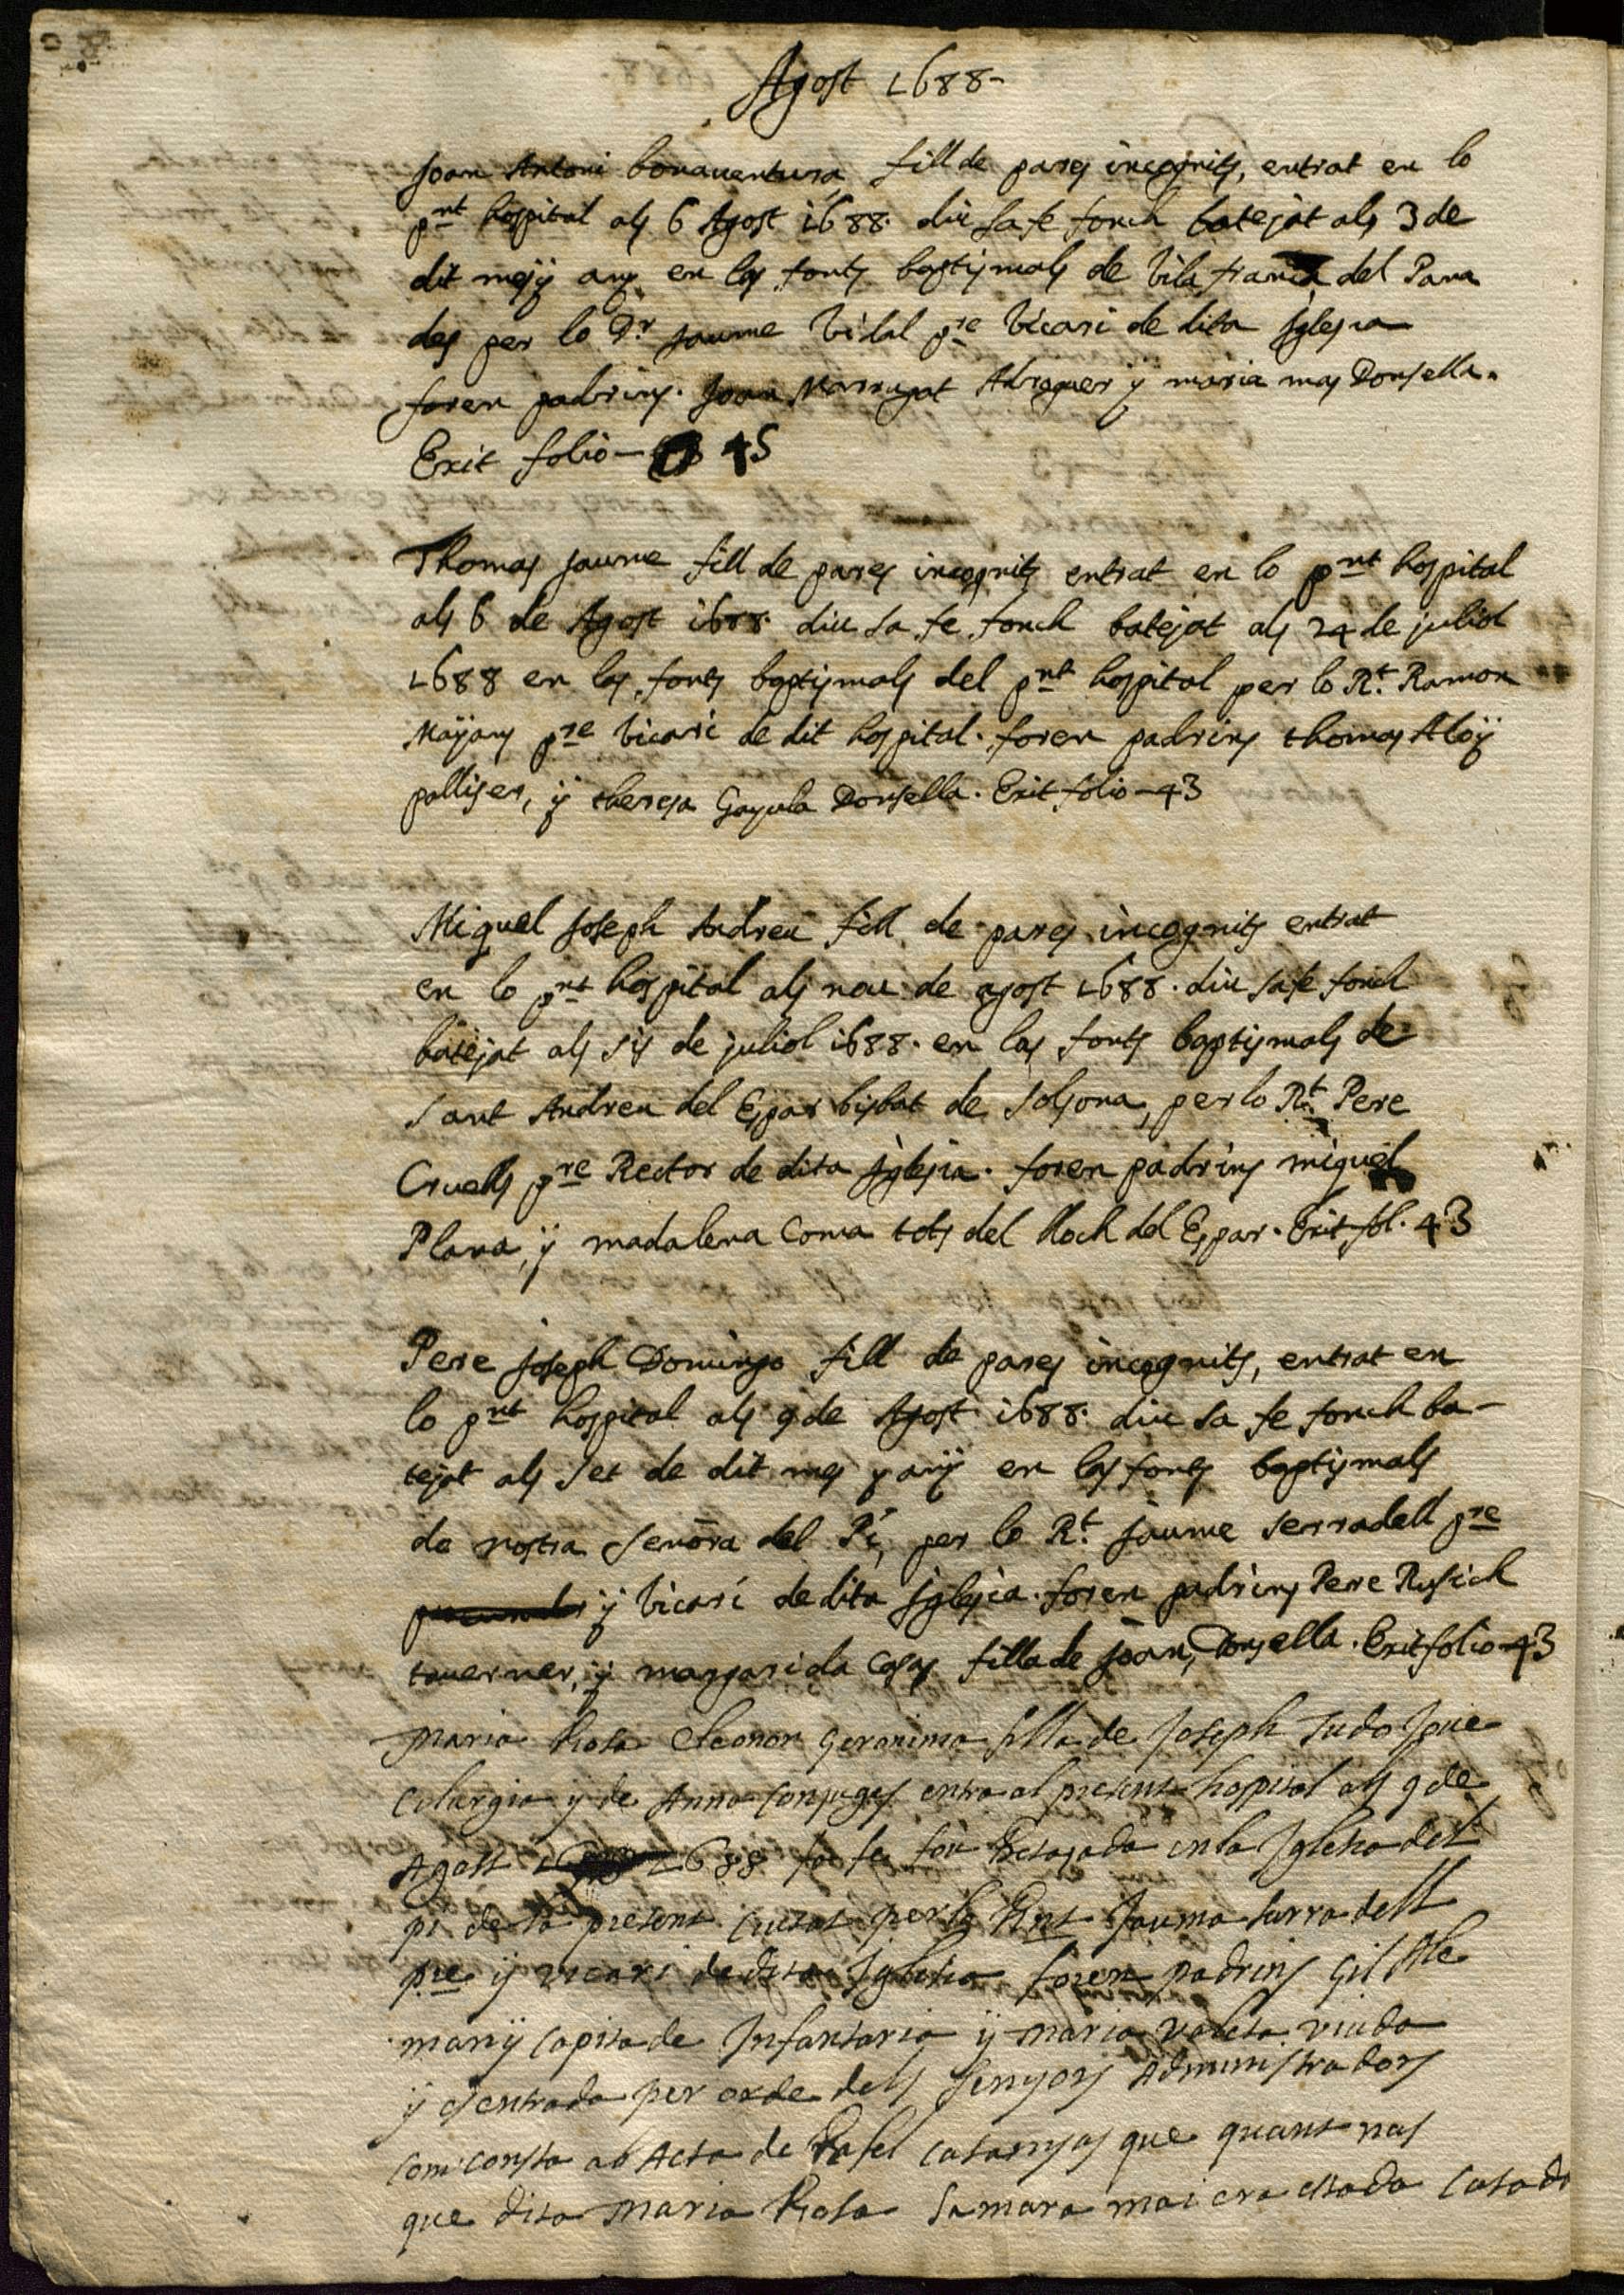 Agost 1688-
Joan Antoni bonauentura, fill de pares incognits, entrat en lo
pnt hospital als 6 Agost 1688. diu sa fe fonch batejat als 3 de
dit mes y any en las fonts baptismals de Vila franca del Pana
des per lo Dr Jaume Vidal pre Vicari de dita Iglesia
foren padrins. Joan Marrugat Adroguer y maria mas Donsella.
Exit folio- 45
Thomas Jaume fill de pares incognits entrat en lo pnt hospital
als 6 de Agost 1688. diu sa fe fonch batejat als 24 de juliol
1688 en las fonts baptismals del pnt hospital per lo Rt. Ramon
Mayans pre Vicari de dit hospital. foren padrins thomas Aloÿ
palliser, ÿ theresa Gayula Donsella. Exit folio-43
Miquel Joseph Andreu fill de pares incognits entrat
en lo pnt hospital als nou de agost 1688. diu sa fe fonch
batejat als sis de juliol 1688. en las fonts baptismals de
Sant Andreu del Espar bisbat de Solsona, per lo Rt. Pere
Cruells pre Rector de dita Iglesia. foren padrins miquel
Plana, ÿ madalena Coma tots del lloch del Espar. Exit fol. 43
Pere Joseph Domingo fill de pares incognits, entrat en
lo pnt hospital als 9 de Agost 1688. diu sa fe fonch ba-
tejat als Set de dit mes y anÿ en las fonts baptismals
de nostra señora del Pi, per lo Rt. Jaume serradell pre
ÿ Vicari de dita Iglesia. foren padrins Pere Rusich
tauerner, ÿ margarida Casas filla de Joan, Donsella. Exit folio-43
Maria Rosa Eleonor Geronima filla de Joseph Tudo Jove
Cilurgia ÿ de Anna Conjuges entra al present hospital als 9 de
Agost 1688 sa fe fou Betajada en la Iglesia del
pi de la present Ciutat per lo Rnt Jauma Sarradell
pre ÿ vicari de dita Iglesia foren padrins Gil Ale
manÿ Capita de Infantaria ÿ Maria Valeta viuda
ÿ es entrada per orde dels Senyors Administradors
com consta ab Acta de Rafel Catanyas que quant nas
que dita Maria Rosa Samara mai era estada Casada